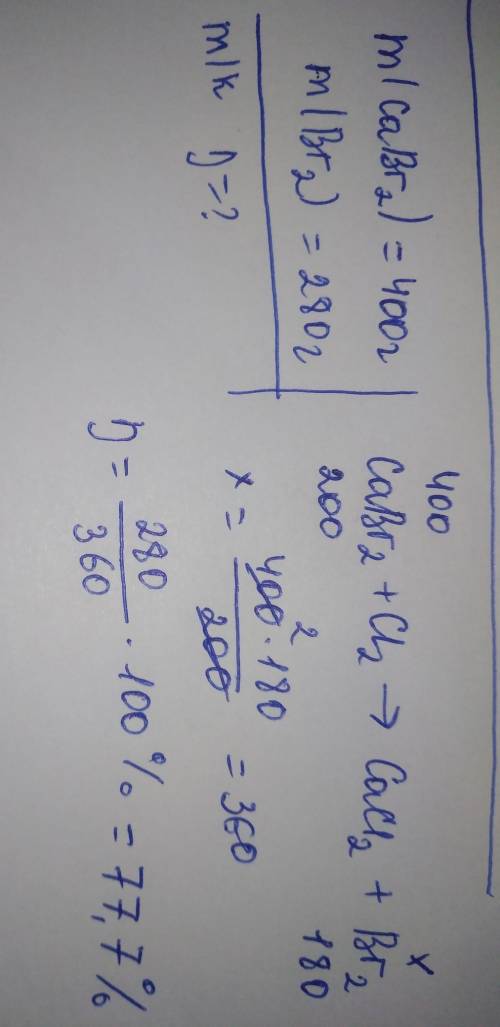 m(CaBr₂) = 400г
m(Br₂) = 280г
m/к η = ?
400 x
CaBr₂ + Cl₂ → CaCl₂ + Br₂
200 180
x = 400² · 180 / 200 = 360
η = 280 / 360 · 100% = 77,7%